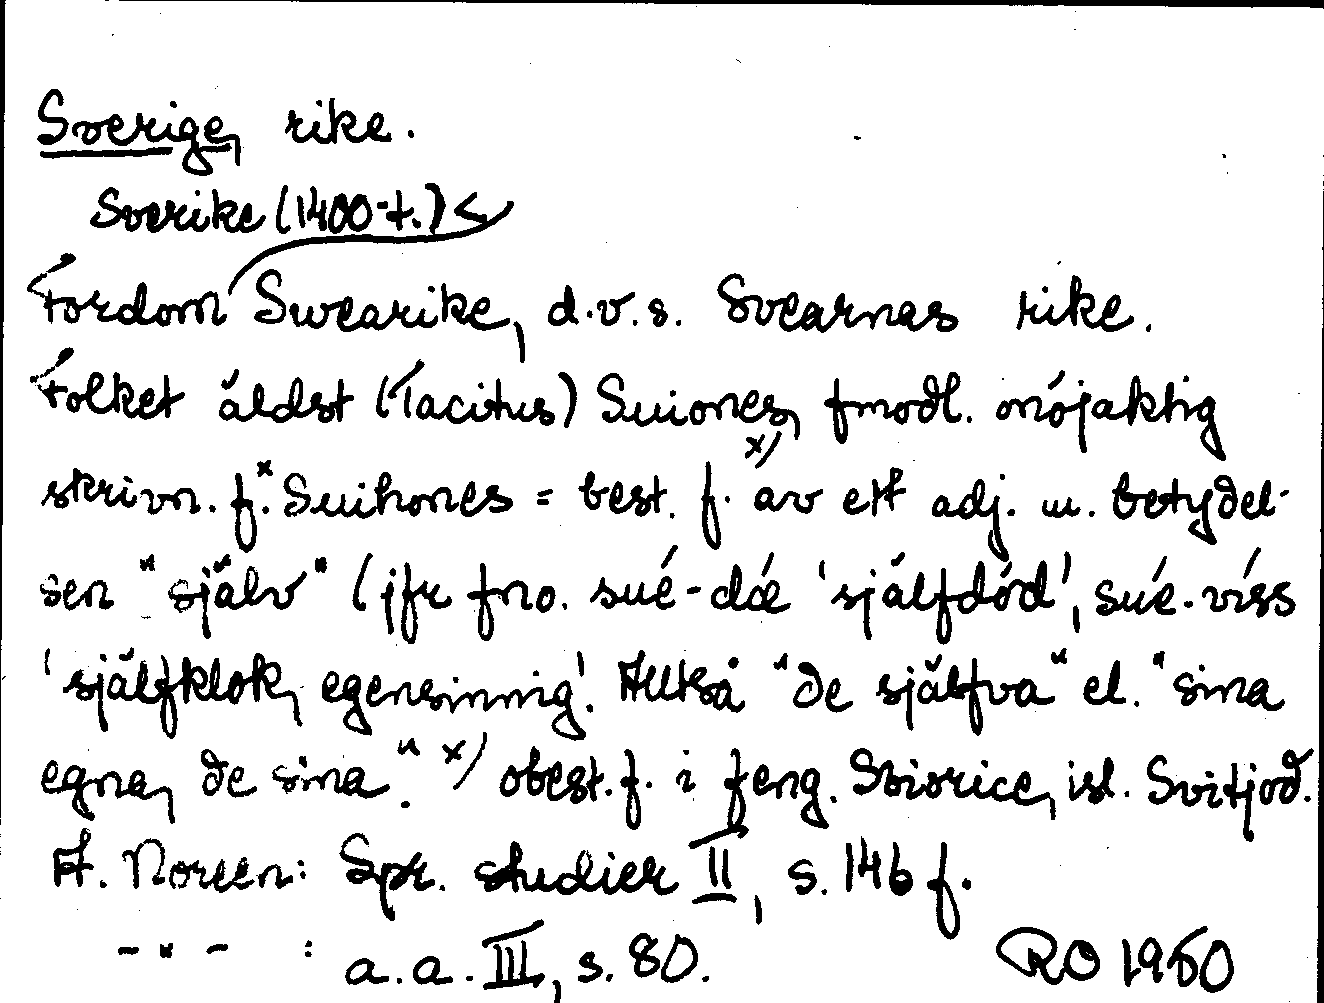 Sverige, rike.
Sverike (1400-t.) <
Fordom Swearike, d.v.s. Svearnas rike.
Folket äldst (Tacitus) Suiones, fmodl. onöjaktig
skrivn. f. ˣSuihones = best. f. ˣ⁾ av ett adj. m. betydel-
sen "själv" (jfr fno. sué-dǿ 'själfdöd', sué-víss
'själfklok, egensinnig'. Alltså "de själfva" el. "sina
egna, de sina". ˣ⁾ obest. f. i feng. Swiorice, isl. Svitjod.
A. Noreen: Spr. studier II, s. 146 f.
- " - : a.a. III, s. 80. RO 1980